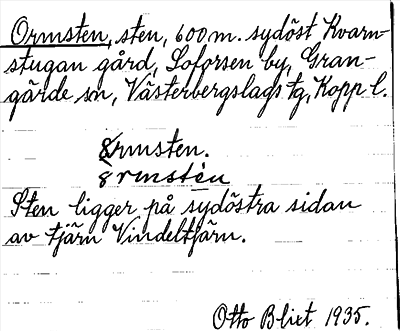 Ormsten, sten, 600 m. sydöst Kvarn-
stugan gård, Loforsen by, Gran-
gärde sn, Västerbergslags tg, Kopp l.
Ormsten.
ormstèn
Sten ligger på sydöstra sidan
av tjärn Vindeltjärn.
Otto Blixt 1935.